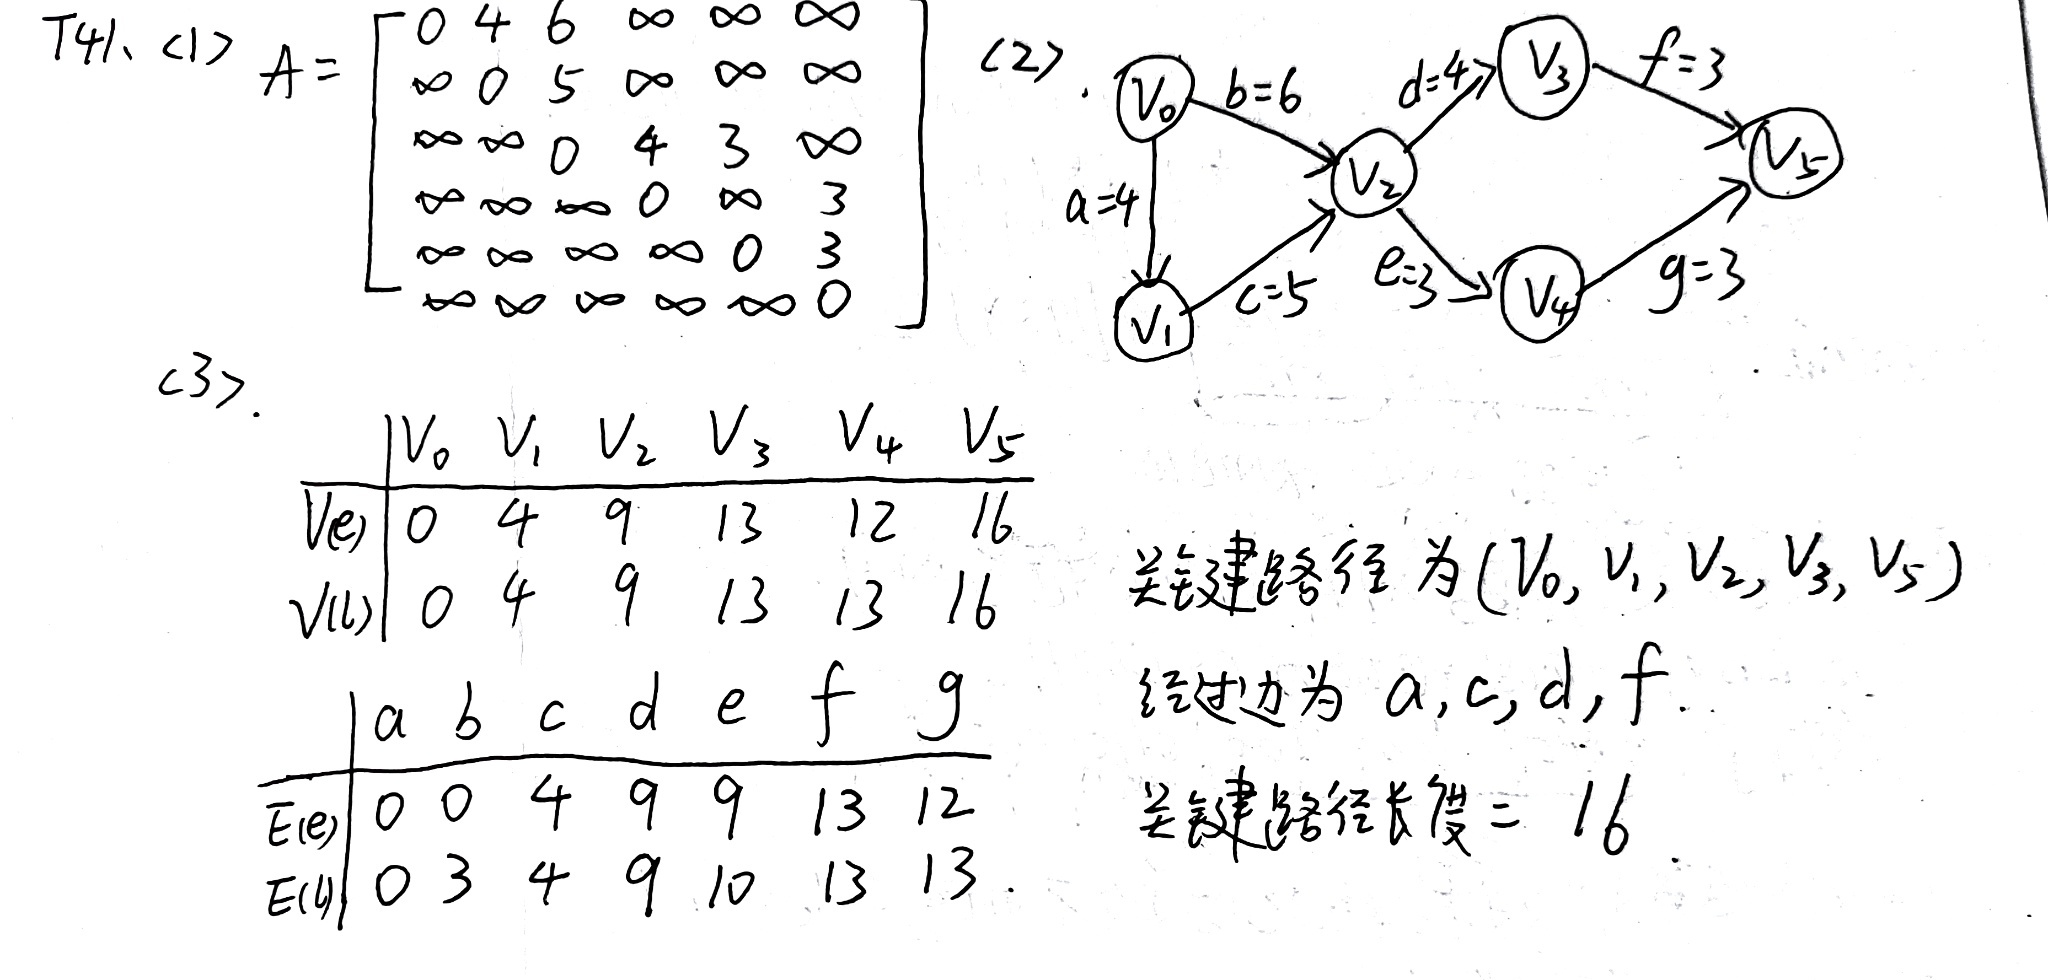 T41、<1> A =
0 4 6 ∞ ∞ ∞
∞ 0 5 ∞ ∞ ∞
∞ ∞ 0 4 3 ∞
∞ ∞ ∞ 0 ∞ 3
∞ ∞ ∞ ∞ 0 3
∞ ∞ ∞ ∞ ∞ 0
<2>.
V₀ b=6 d=4 V₃ f=3
a=4 V₂ V₅
V₁ c=5 e=3 V₄ g=3
<3>.
V₀ V₁ V₂ V₃ V₄ V₅
V(e) 0 4 9 13 12 16
V(l) 0 4 9 13 13 16
a b c d e f g
E(e) 0 0 4 9 9 13 12
E(l) 0 3 4 9 10 13 13.
关键路径为(V₀, V₁, V₂, V₃, V₅)
经过边为 a, c, d, f.
关键路径长度 = 16.